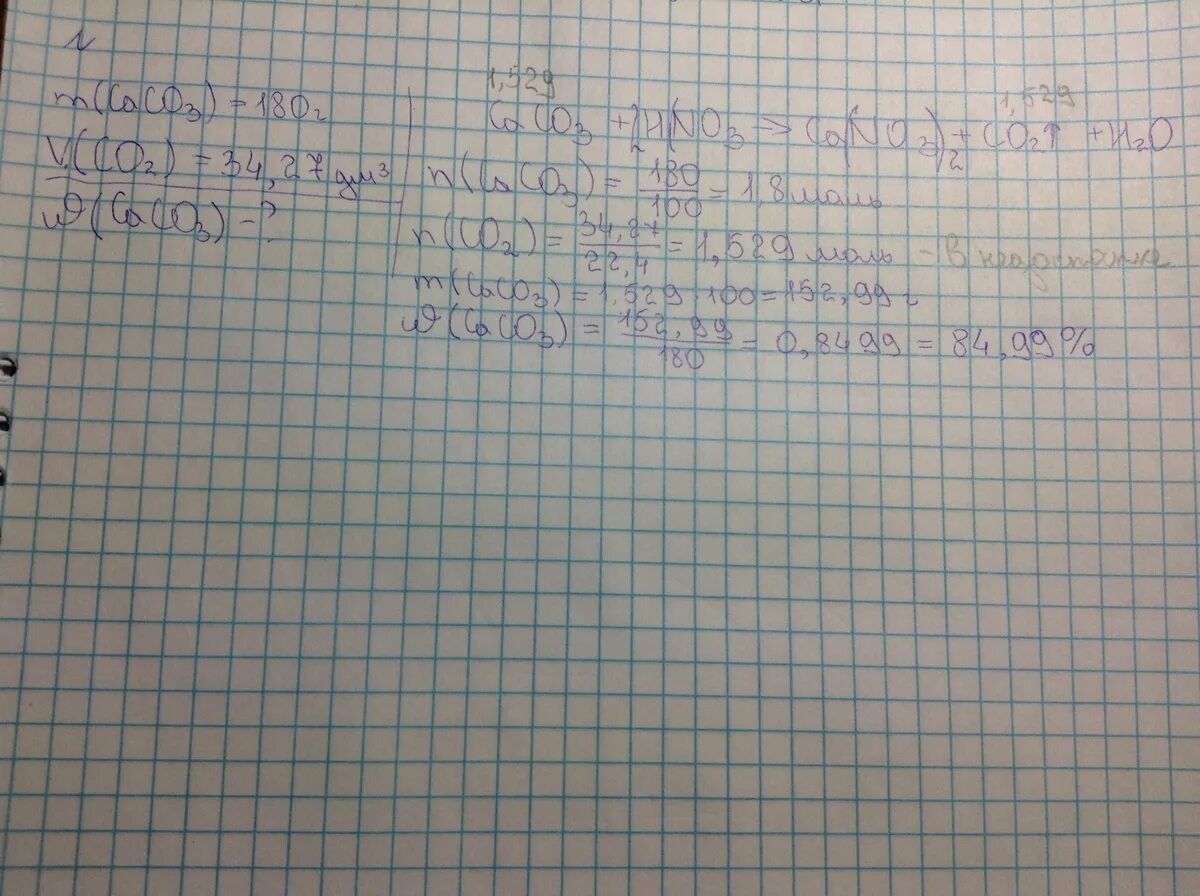 m(CaCO3) = 180г
V(CO2) = 34,27 дм³
ω(CaCO3) - ?
1,529 1,529
CaCO3 + 2HNO3 => Ca(NO3)2 + CO2↑ + H2O
n(CaCO3) = 180/100 = 1,8 моль
n(CO2) = 34,27/22,4 = 1,529 моль - в недостатке
m(CaCO3) = 1,529 · 100 = 152,99 г
ω(CaCO3) = 152,99/180 = 0,8499 = 84,99%